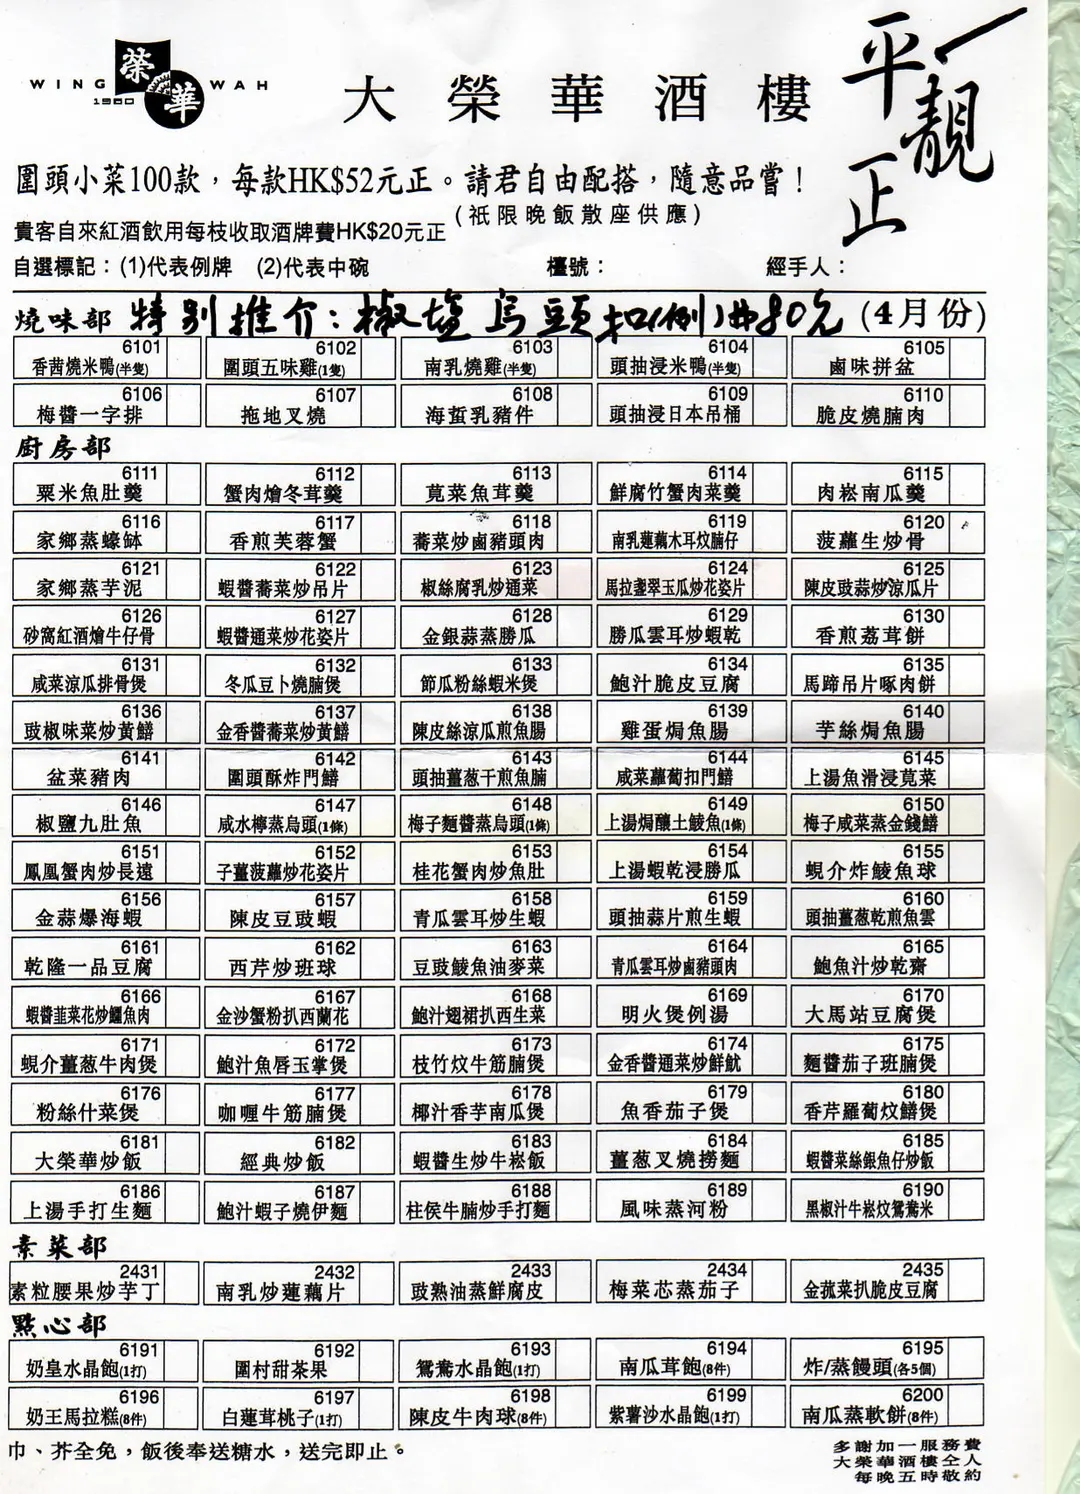 WING WAH
榮華
1950
大榮華酒樓
一
平
靚
正
圍頭小菜100款，每款HK$52元正。請君自由配搭，隨意品嘗！
(祇限晚飯散座供應)
貴客自來紅酒飲用每枝收取酒牌費HK$20元正
自選標記：(1)代表例牌 (2)代表中碗 檯號： 經手人：
燒味部 特別推介：椒塩烏頭扣(例)$80元 (4月份)
6101 6102 6103 6104 6105
香茜燒米鴨(半隻) 圍頭五味雞(1隻) 南乳燒雞(半隻) 頭抽浸米鴨(半隻) 鹵味拼盆
6106 6107 6108 6109 6110
梅醬一字排 拖地叉燒 海蜇乳豬件 頭抽浸日本吊桶 脆皮燒腩肉
廚房部
6111 6112 6113 6114 6115
粟米魚肚羹 蟹肉燴冬茸羹 莧菜魚茸羹 鮮腐竹蟹肉菜羹 肉崧南瓜羹
6116 6117 6118 6119 6120
家鄉蒸蠔缽 香煎芙蓉蟹 蕎菜炒鹵豬頭肉 南乳蓮藕木耳炆腩仔 菠蘿生炒骨
6121 6122 6123 6124 6125
家鄉蒸芋泥 蝦醬蕎菜炒吊片 椒絲腐乳炒通菜 馬拉盞翠玉瓜炒花姿片 陳皮豉蒜炒涼瓜片
6126 6127 6128 6129 6130
砂窩紅酒燴牛仔骨 蝦醬通菜炒花姿片 金銀蒜蒸勝瓜 勝瓜雲耳炒蝦乾 香煎荔茸餅
6131 6132 6133 6134 6135
咸菜涼瓜排骨煲 冬瓜豆卜燒腩煲 節瓜粉絲蝦米煲 鮑汁脆皮豆腐 馬蹄吊片啄肉餅
6136 6137 6138 6139 6140
豉椒味菜炒黃鱔 金香醬蕎菜炒黃鱔 陳皮絲涼瓜煎魚腸 雞蛋焗魚腸 芋絲焗魚腸
6141 6142 6143 6144 6145
盆菜豬肉 圍頭酥炸門鱔 頭抽薑葱干煎魚腩 咸菜蘿蔔扣門鱔 上湯魚滑浸莧菜
6146 6147 6148 6149 6150
椒鹽九肚魚 咸水檸蒸烏頭(1條) 梅子麵醬蒸烏頭(1條) 上湯焗釀土鯪魚(1條) 梅子咸菜蒸金錢鱔
6151 6152 6153 6154 6155
鳳凰蟹肉炒長遠 子薑菠蘿炒花姿片 桂花蟹肉炒魚肚 上湯蝦乾浸勝瓜 蜆介炸鯪魚球
6156 6157 6158 6159 6160
金蒜爆海蝦 陳皮豆豉蝦 青瓜雲耳炒生蝦 頭抽蒜片煎生蝦 頭抽薑葱乾煎魚雲
6161 6162 6163 6164 6165
乾隆一品豆腐 西芹炒班球 豆豉鯪魚油麥菜 青瓜雲耳炒鹵豬頭肉 鮑魚汁炒乾齋
6166 6167 6168 6169 6170
蝦醬韮菜花炒鱷魚肉 金沙蟹粉扒西蘭花 鮑汁翅裙扒西生菜 明火煲例湯 大馬站豆腐煲
6171 6172 6173 6174 6175
蜆介薑葱牛肉煲 鮑汁魚唇玉掌煲 枝竹炆牛筋腩煲 金香醬通菜炒鮮魷 麵醬茄子班腩煲
6176 6177 6178 6179 6180
粉絲什菜煲 咖喱牛筋腩煲 椰汁香芋南瓜煲 魚香茄子煲 香芹羅蔔炆鱔煲
6181 6182 6183 6184 6185
大榮華炒飯 經典炒飯 蝦醬生炒牛崧飯 薑葱叉燒撈麵 蝦醬菜絲銀魚仔炒飯
6186 6187 6188 6189 6190
上湯手打生麵 鮑汁蝦子燒伊麵 柱侯牛腩炒手打麵 風味蒸河粉 黑椒汁牛崧炆鴛鴦米
素菜部
2431 2432 2433 2434 2435
素粒腰果炒芋丁 南乳炒蓮藕片 豉熟油蒸鮮腐皮 梅菜芯蒸茄子 金菰菜扒脆皮豆腐
點心部
6191 6192 6193 6194 6195
奶皇水晶飽(1打) 圍村甜茶果 鴛鴦水晶飽(1打) 南瓜茸飽(8件) 炸/蒸饅頭(各5個)
6196 6197 6198 6199 6200
奶王馬拉糕(8件) 白蓮茸桃子(1打) 陳皮牛肉球(8件) 紫薯沙水晶飽(1打) 南瓜蒸軟餅(8件)
巾、芥全免，飯後奉送糖水，送完即止。
多謝加一服務費
大榮華酒樓仝人
每晚五時敬約